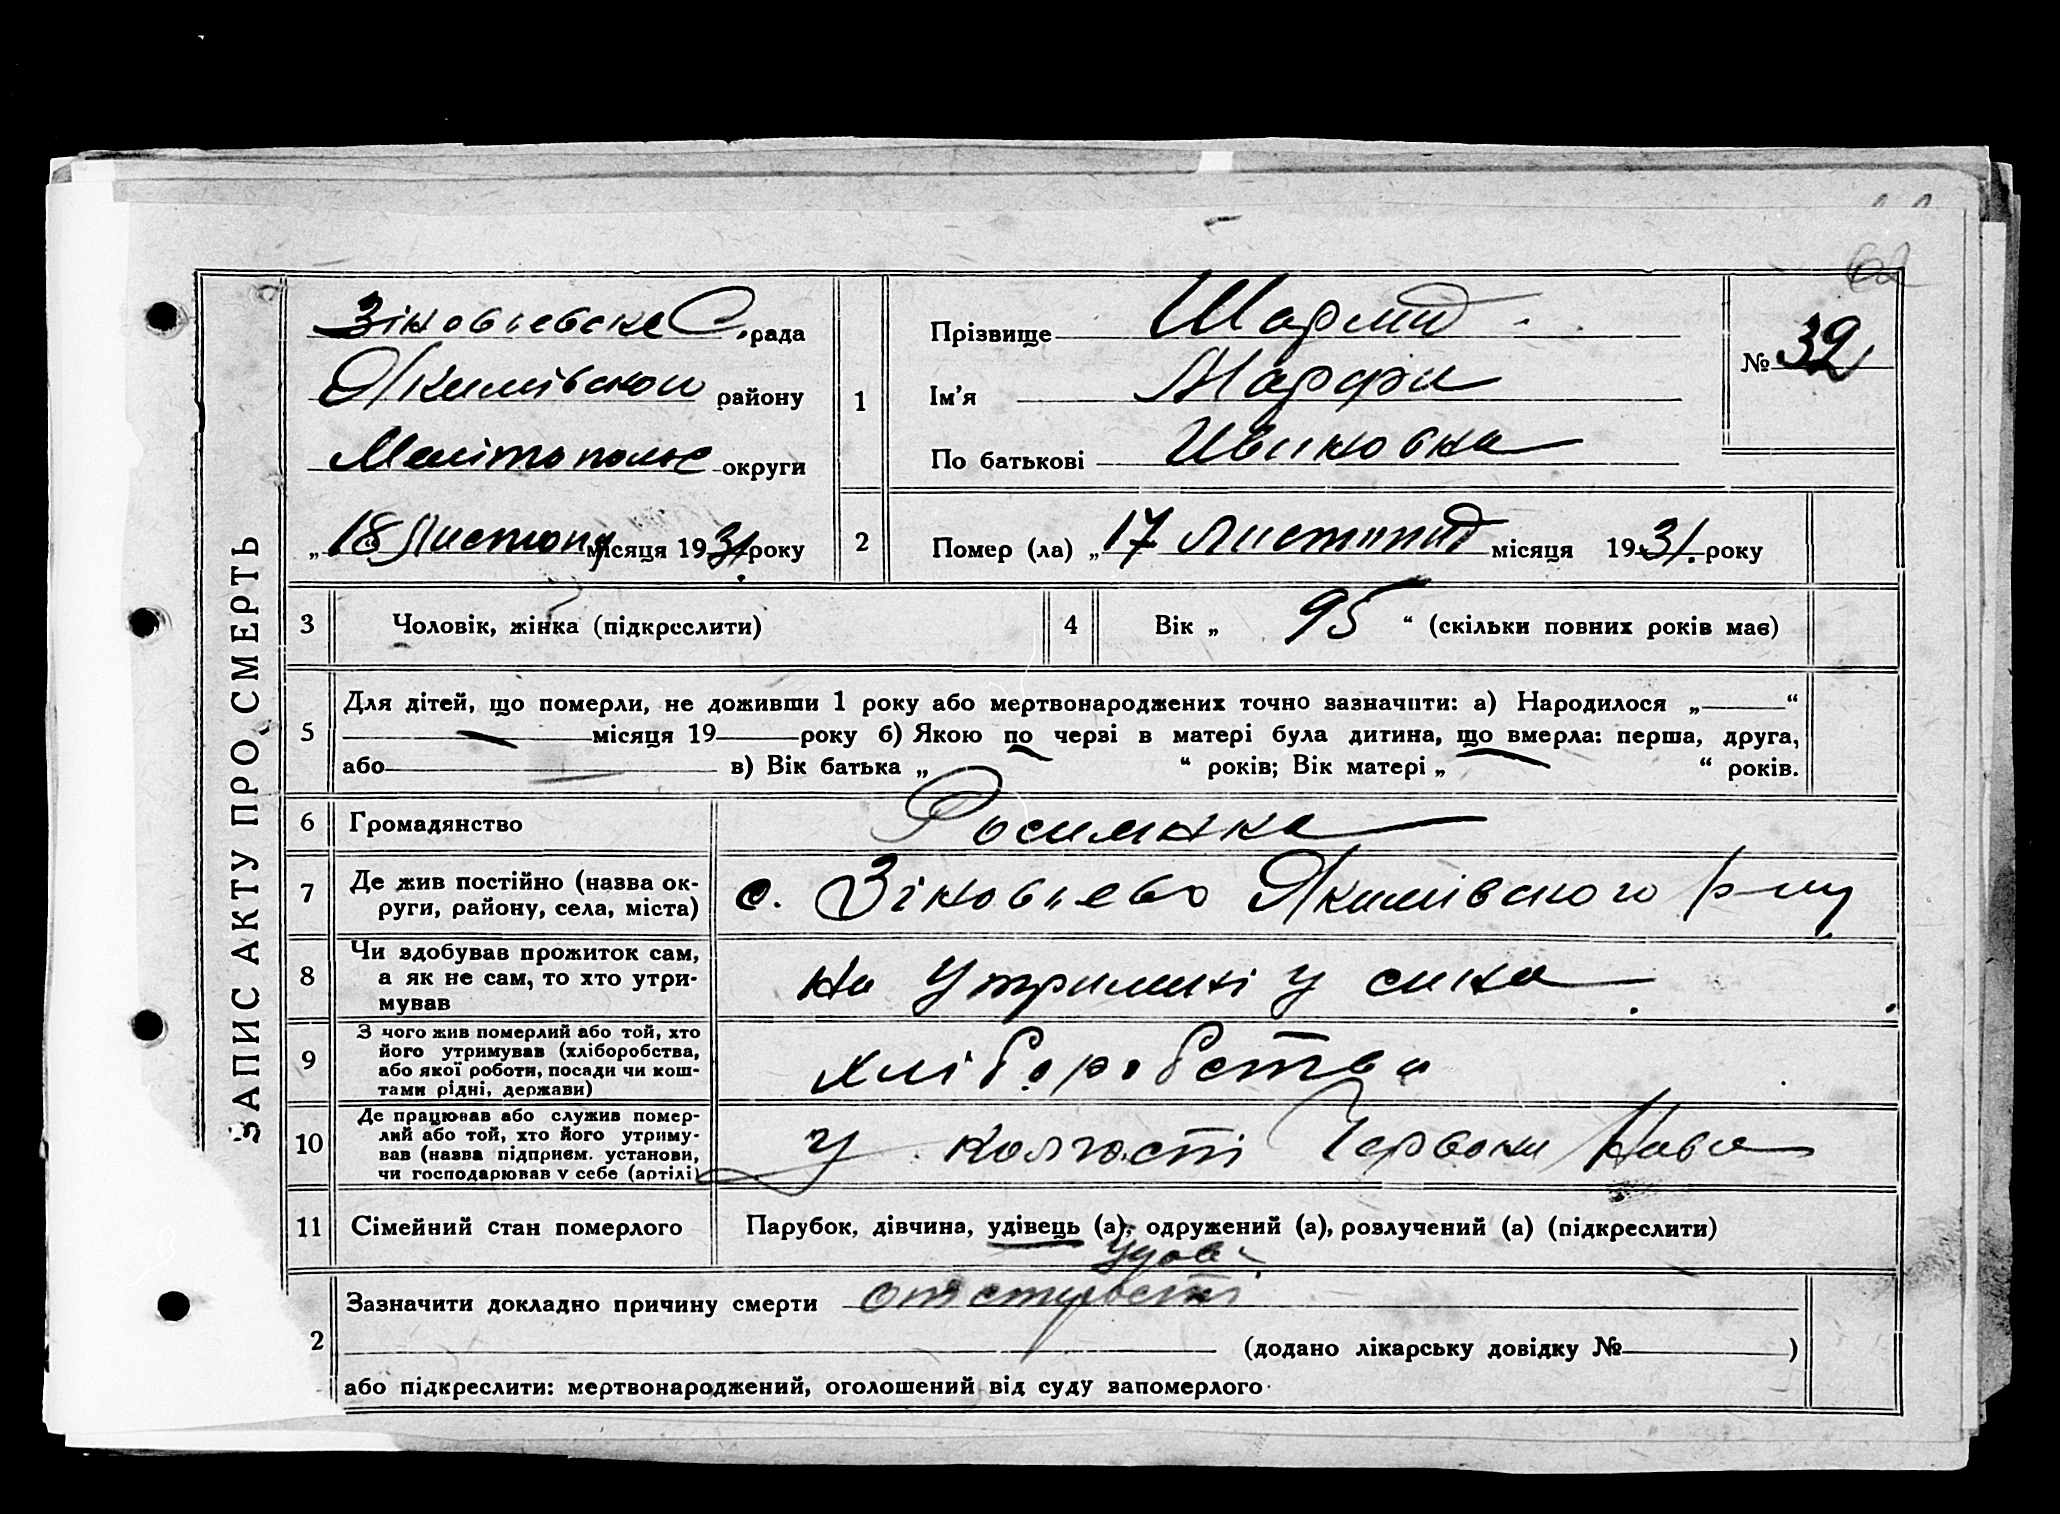 62
ЗАПИС АКТУ ПРО СМЕРТЬ
Зіновьевска С. рада
Якимівскои району
Мелітополс округи
„ 18 Листопа місяця 1931. року
1
Прізвище
Ім'я Марфи
По батькові Ивановна
№ 32
2
Помер (ла) „ 17 листопад місяця 1931. року
3 Чоловік, жінка (підкреслити)
4 Вік „ 95 “ (скільки повних років має)
5
Для дітей, що померли, не доживши 1 року або мертвонароджених точно зазначити: а) Народилося „ “
місяця 19 року б) Якою по черзі в матері була дитина, що вмерла: перша, друга,
або в) Вік батька „ “ років; Вік матері „ “ років.
6 Громадянство
7 Де жив постійно (назва ок-
руги, району, села, міста)
с. Зіновьево Якимівского р-ну
8 Чи здобував прожиток сам,
а як не сам, то хто утри-
мував
на утримині у сина
9 З чого жив померлий або той, хто
його утримував (хліборобства,
або якої роботи, посади чи кош-
тами рідні, держави)
хліборобства
10 Де працював або служив помер-
лий або той, хто його утриму-
вав (назва підприєм. установи,
чи господарював у себе (артілі)
у колгоспі Червони Нива
11 Сімейний стан померлого
Парубок, дівчина, удівець (а), одружений (а), розлучений (а) (підкреслити)
удова
2 Зазначити докладно причину смерти от старости
(додано лікарську довідку № )
або підкреслити: мертвонароджений, оголошений від суду запомерлого